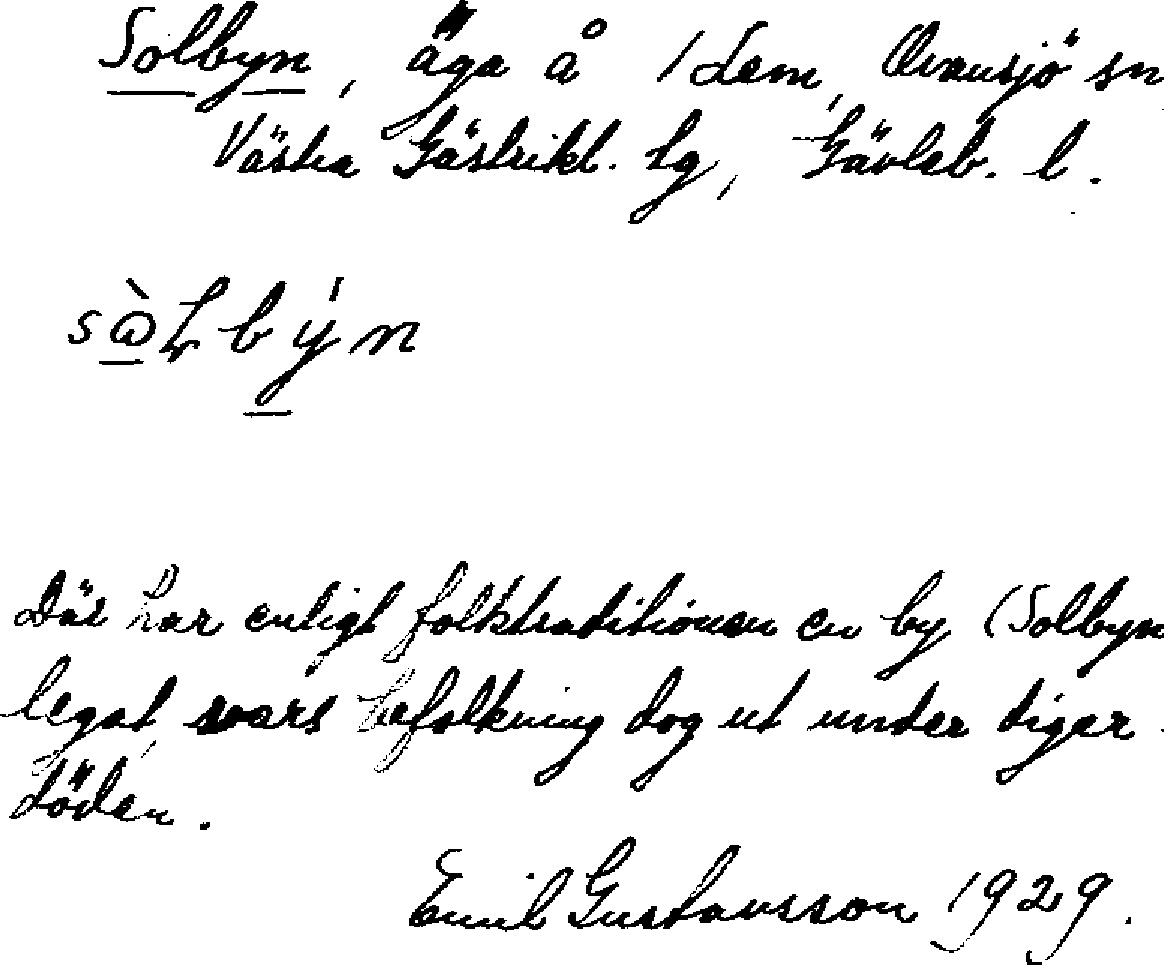 Solbyn, äga å 1 Lem, Ovansjö sn
Västra Gästrikl. tg, Gävleb. l.
Där har enligt folktraditionen en by (Solbyn
legat, vars befolkning dog ut under diger-
döden.
Emil Gustavsson 1929.